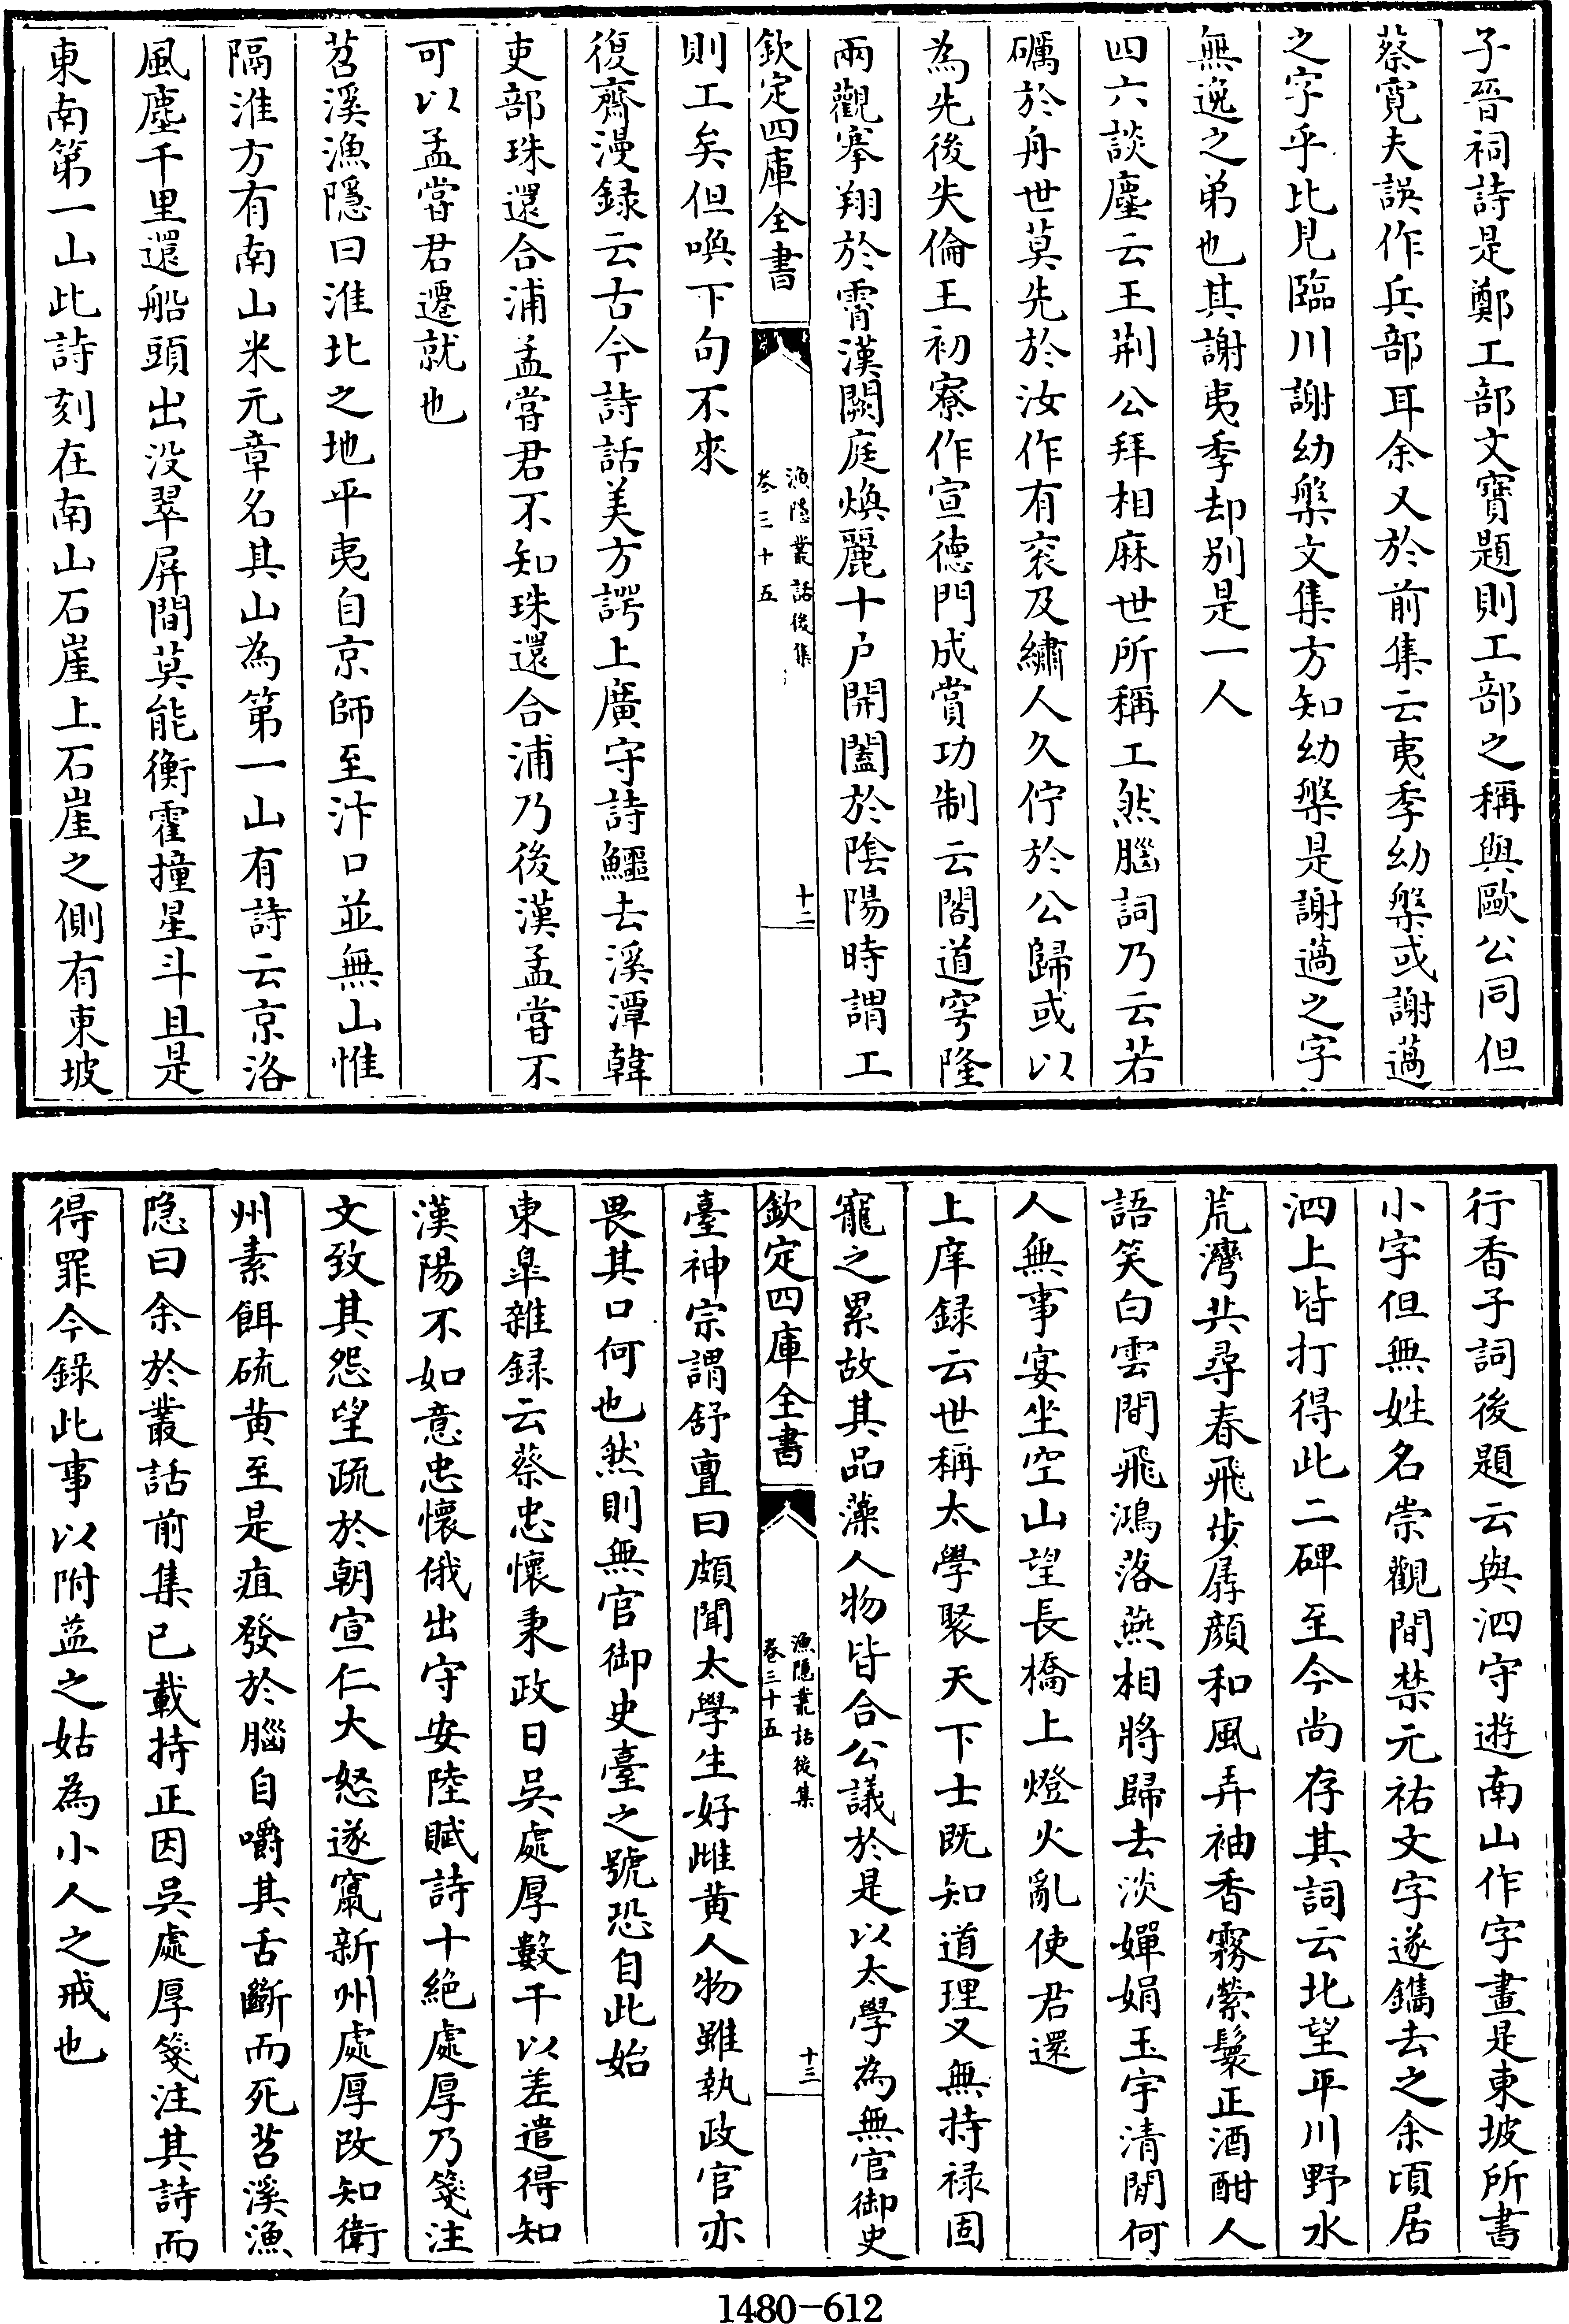 子晉祠詩是鄭工部文寶題則工部之稱與歐公同但
蔡寬夫誤作兵部耳余又於前集云夷季幼槃或謝薖
之字乎比見臨川謝幼槃文集方知幼槃是謝薖之字
無逸之弟也其謝夷季却别是一人
四六談麈云王荆公拜相麻世所稱工然腦詞乃云若
礪於舟世莫先於汝作有衮及繡人久佇於公歸或以
為先後失倫王初寮作宣徳門成賞功制云閣道穹隆
兩觀搴翔於霄漢闕庭煥麗十户開闔於陰陽時謂工
欽定四庫全書
漁隱叢話後集
卷三十五
十二
則工矣但喚下句不來
復齋漫録云古今詩話美方諤上廣守詩鱷去溪潭韓
吏部珠還合浦孟嘗君不知珠還合浦乃後漢孟嘗不
可以孟嘗君遷就也
苕溪漁隱曰淮北之地平夷自京師至汴口並無山惟
隔淮方有南山米元章名其山為第一山有詩云京洛
風塵千里還船頭出没翠屏間莫能衡霍撞星斗且是
東南第一山此詩刻在南山石崖上石崖之側有東坡
行香子詞後題云與泗守遊南山作字畫是東坡所書
小字但無姓名崇觀間禁元祐文字遂鐫去之余頃居
泗上皆打得此二碑至今尚存其詞云北望平川野水
荒灣共尋春飛步孱顔和風弄袖香霧縈鬟正酒酣人
語笑白雲間飛鴻落燕相將歸去淡嬋娟玉宇清閒何
人無事宴坐空山望長橋上燈火亂使君還
上庠録云世稱太學聚天下士既知道理又無持禄固
寵之累故其品藻人物皆合公議於是以太學為無官御史
欽定四庫全書
漁隱叢話後集
卷三十五
十三
臺神宗謂舒亶曰頗聞太學生好雌黄人物雖執政官亦
畏其口何也然則無官御史臺之號恐自此始
東臯雜録云蔡忠懷秉政日吳處厚數干以差遣得知
漢陽不如意忠懷俄出守安陸賦詩十絶處厚乃箋注
文致其怨望疏於朝宣仁大怒遂竄新州處厚改知衛
州素餌硫黄至是疽發於腦自嚼其舌斷而死苕溪漁
隱曰余於叢話前集已載持正因吳處厚箋注其詩而
得罪今録此事以附益之姑為小人之戒也
1480-612